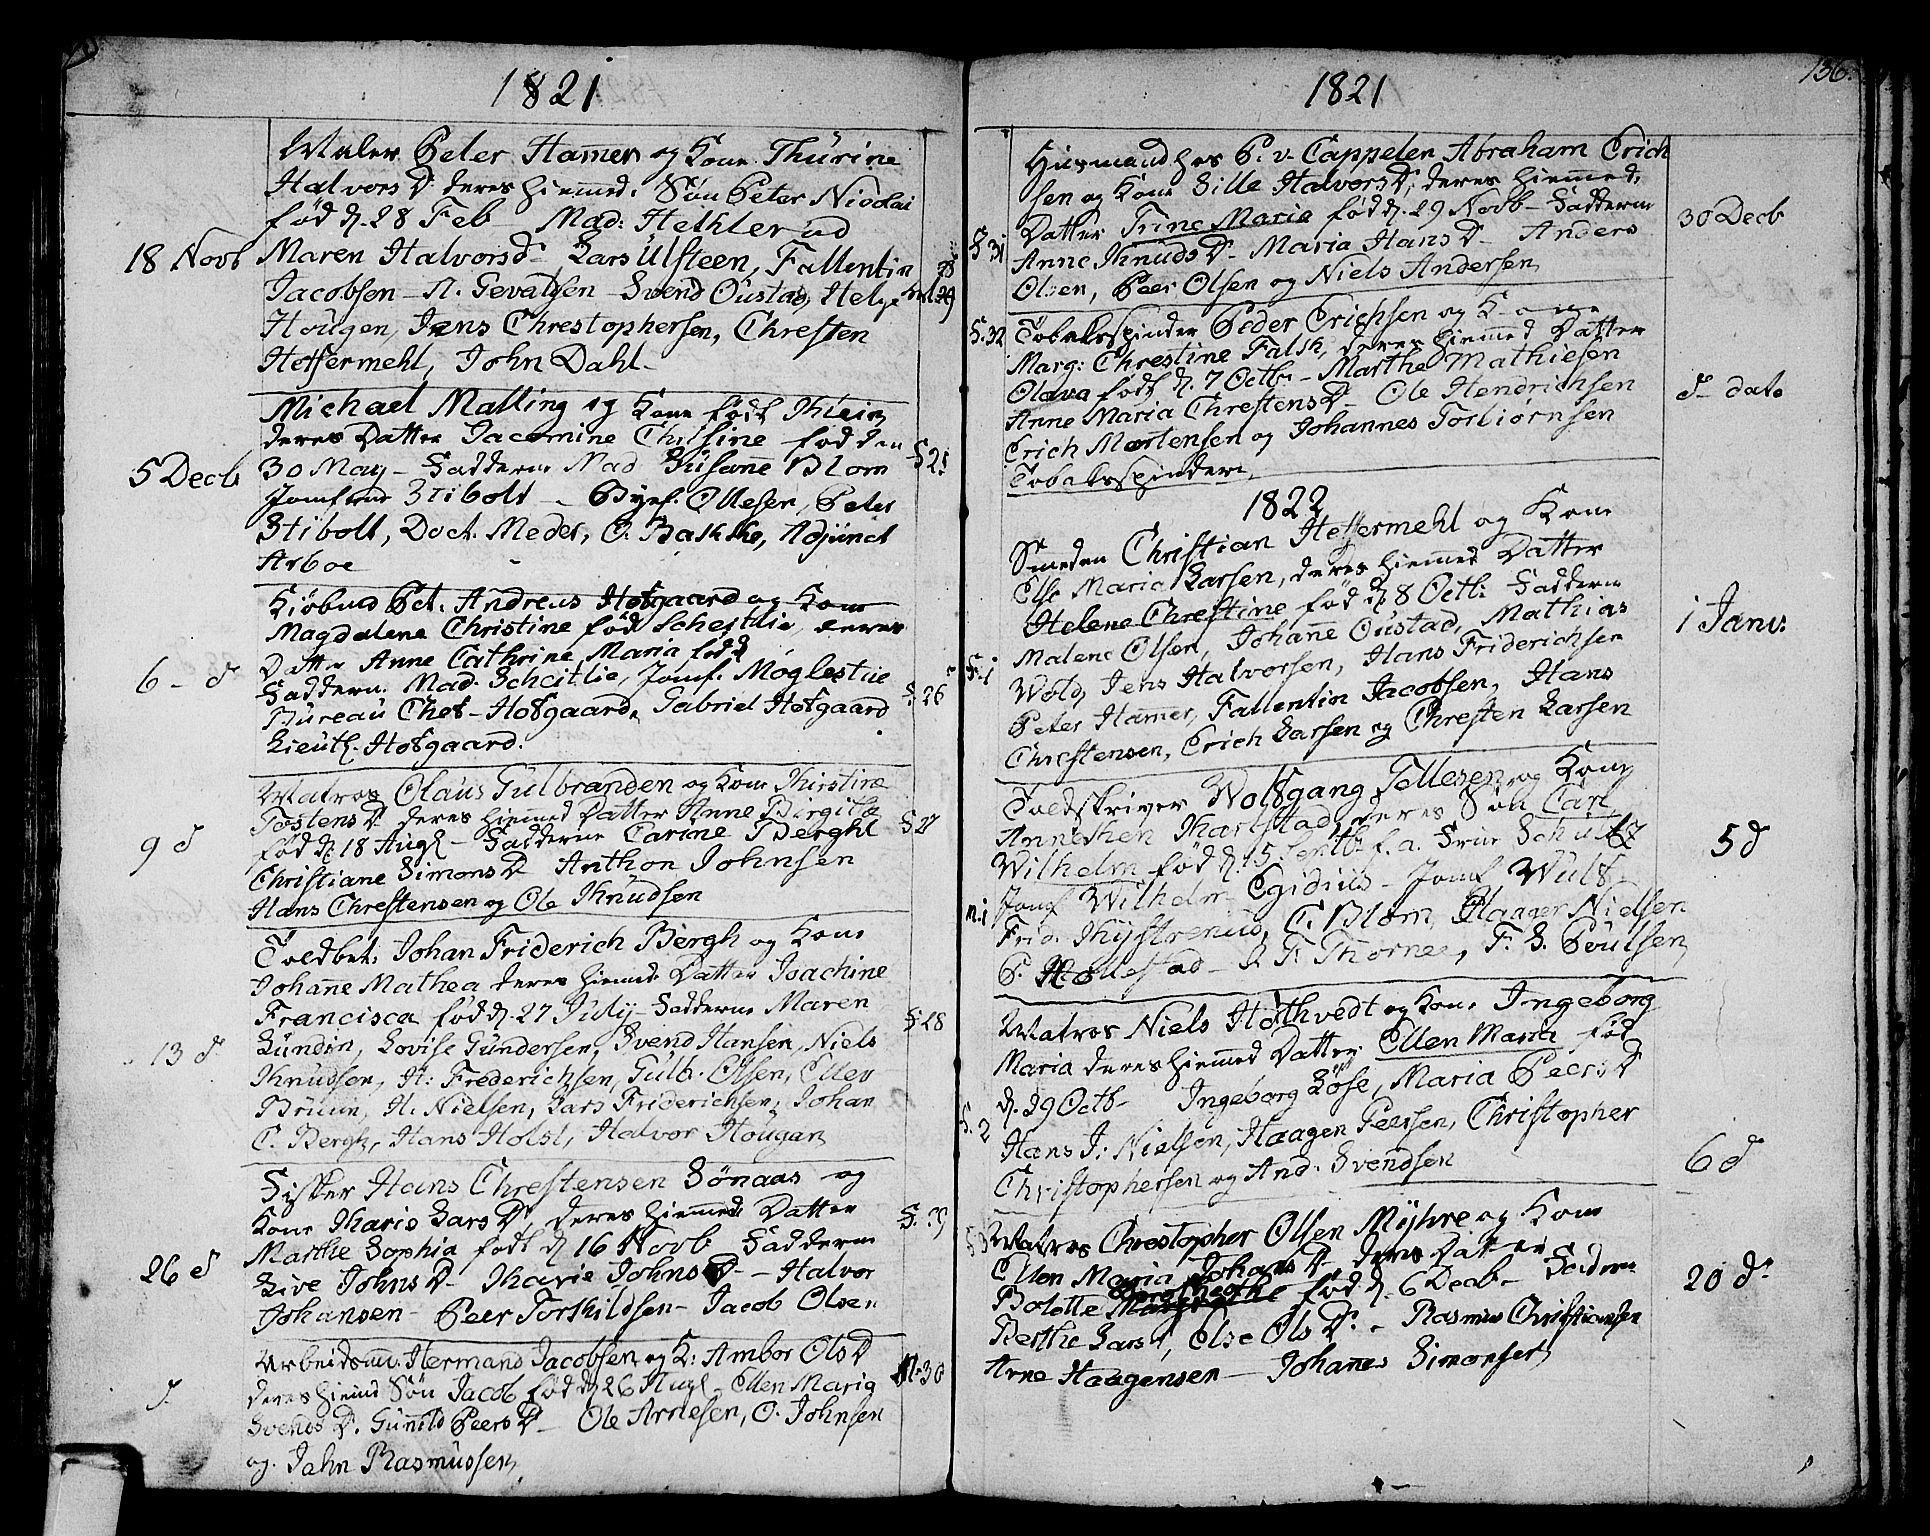 1821
Maler Peter Hammer og Kone Thurine
Halvors D. deres hiemmed. Søn Peter Nicolai
fød d. 28 Feb – Mad: Hethler ud
18 Novb Maren Halvorsd – Lars Ulsteen, Fallentin
Jacobsen – A. Gevaltsen – Svend Oustad, Helge
Hougen, Jens Chrestophersen, Chresten
Heffermehl, John Dahl –
Michael Malling og Kone født Klein
deres Datter Jacomine Thesine fød den
5 Decb 30 May – Fadderne Mad Susanne Blom
Jomfrue Stibolt – Byef. Ollesen, Peter
Stibolt, Doct. Meder, O. Bakke, Adjunct
Arboe
Kiøbmd Pet. Andreas Hofgaard og Kone
Magdalene Christine fød Scheitlie, deres
Datter Anne Cathrine Maria født
6 – d Faddern. Mad. Scheitlie, Jomf. Møglestue S. 26
Bureau Chef – Hofgaard, Gabriel Hofgaard
Lieut. Hofgaard.
Matros Olaus Gulbranden og Kone Kirstine
Tostens D. deres hiemmed Datter Anne Birgitte
9 d fød d. 18 Augs – Fadderne Carine Berghl S 27
Christiane Simons D Anthon Johnsen
Hans Chrestensen og Ole Knudsen
Toldbet: Johan Friderich Bergh og Kone
Johanne Mathea deres hiemd. Datter Joachine
Francisca fød d. 27 July – Fadderne Maren S. 28
13 d Lundin, Lovise Gundersen, Svend Hansen, Niels
Knudsen, H: Frederichsen, Gulb. Olsen, Ellev
Bruun, H. Nielsen, Lars Friderichsen, Johan
C. Bergh, Hans Holst, Halvor Hougan
Fisker Hans Chrestensen Lønaas og
Kone Karis Lars D, deres hiemmed Datter
Marthe Sophia født d 16 Novb Fadderne
26 d Live Johns D – Karie Johns D – Halvor
Johansen – Peer Torkildsen – Jacob Olsen
Arbeidsm. Hermand Jacobsen og K: Ambor Ols D M. 30
deres hiemd Søn Jacob fød d 26 Augs – Ellen Maria
d. Svends D. Gunild Peers D – Ole Arnesen, O. Johnsen
og Jahn Rasmussen
1821
136.
Husmand hos P. v. Cappelen Abraham Erich
sen og Kone Sille Halvors D, deres hiemmed.
Datter Trine Maria fød d. 29 Novb – Fadderne 30 Decb
S 31 Anne Knuds D – Maria Hans D – Anders
Olsen, Peer Olsen og Niels Andersen
S. 32 Tobaksspinder Peder Erichsen og K
Marg: Chrestine Falsk, deres hiemmed Datter
Olava født d. 7 Octb – Marthe Mathiesen
Anne Maria Chrestens D – Ole Hendrichsen d – dato
Erich Mortensen og Johannes Torbiørnsen
Tobaksspindere
1822
Smeden Christian Heffermehl og Kone
Else Maria Larsen, deres hiemmed Datter
Helene Chrestine fød d. 8 Octb: Fadderne
Malene Olsen, Johanne Oustad, Mathias 1 Janv.
S. 1 Wold, Jens Halvorsen, Hans Friderichsen
Peter Hammer, Fallentin Jacobsen, Hans
Chrestensen, Erich Larsen og Chresten Larsen
Toldskriver Wolfgang Tellesen og Kone
Anneken Karlstad, deres Søn Carl
Wilhelm fød d. 15 Septb f. a. Frue Schultz 5 d
M. 1 Jomf Wilhelm – Egidius – Jomf Wulf –
Frid. Thystrenius, C. Blom, Haager Nielsen
P. Hollestad – J. F. Thornee, F. S. Poulsen
Matros Niels Hothvedt og Kone Ingeborg
Maria deres hiemmed Datter Ellen Maria fød
d. 29 Octb – Ingeborg Løse, Maria Peers D
S. 2 Hans J: Nielsen, Haagen Peersen, Christopher
Christophersen og And: Svendsen 6 d
S 3 Matros Chrestopher Olsen Myhre og Kone
Ellen Maria Johans D, deres Datter
Bolette Dorothea fød d. 6 Decb – Fadderne 20 d.
Berthe Lars D, Else Ols D. – Rasmus Christiansen
Arne Haagensen – Johannes Simonsen